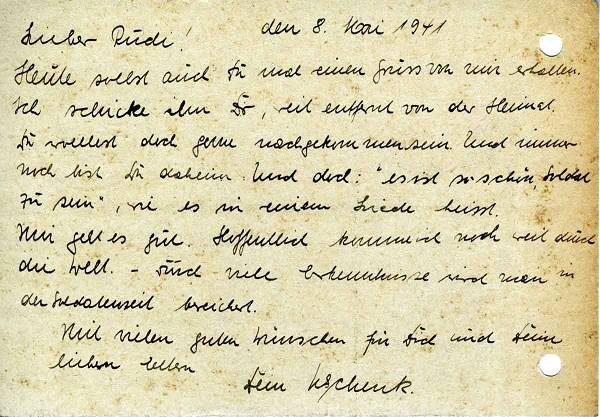 den 8. Mai 1941
Lieber Rudi!
Heute sollst auch Du mal einen Gruss von mir erhalten.
Ich schicke ihn Dir, weit entfernt von der Heimat.
Du wolltest doch gerne nachgekommen sein. Und immer
noch bist Du daheim. Und doch: "es ist so schön, Soldat
zu sein", wie es in einem Liede heisst.
Mir geht es gut. Hoffentlich komme ich noch weit durch
die Welt. - viele Erkenntnisse wird man in
der Soldatenzeit bereichert.
Mit vielen guten Wünschen für Dich und Deine
lieben Eltern
Dein